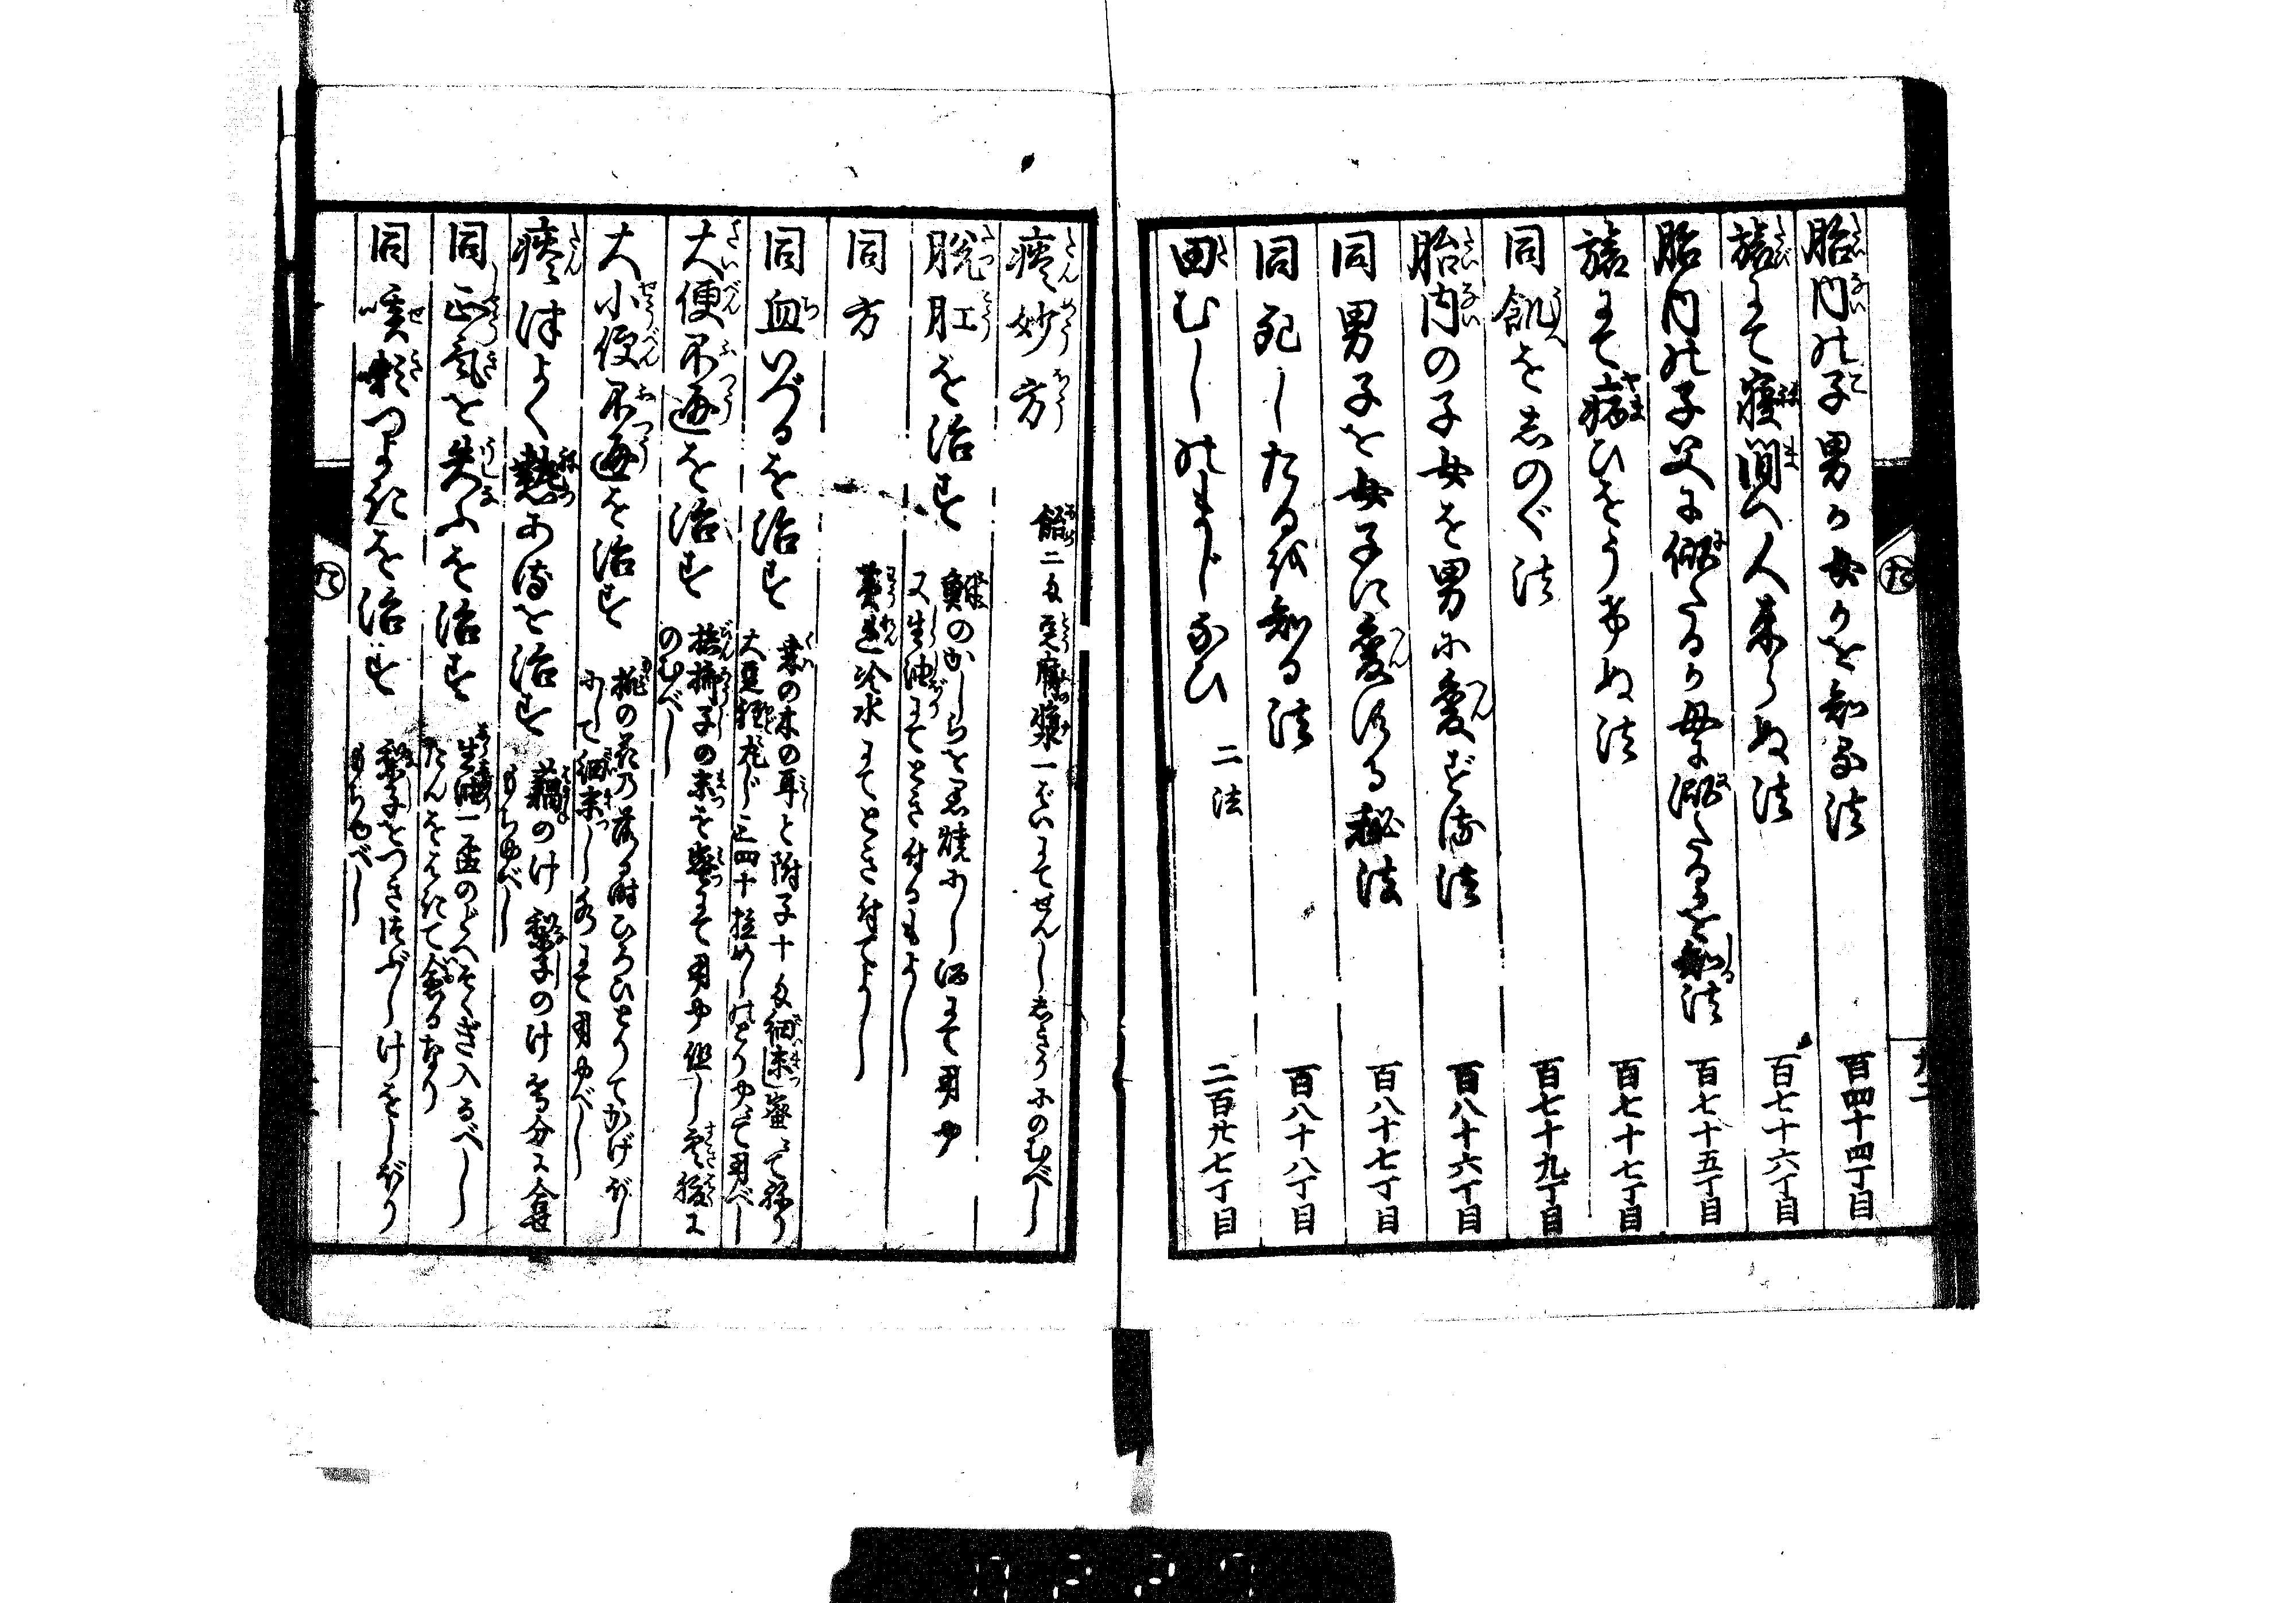 胎内の子男か女かを知る法 百四十四丁目
旅にて寝間へ人来らぬ法 百七十六丁目
胎内の子父に似たるか母に似たるを知法 百七十五丁目
旅にて病ひをうけぬ法 百七十七丁目
同飢を志のぐ法 百七十九丁目
胎内の子女を男に変ずる法 百八十六丁目
同男子を女子に変ずる秘法 百八十七丁目
同死したるを知る法 百八十八丁目
田むしのまじなひ 二法 二百廿七丁目
た
痰妙方 飴二匁豆腐漿一ぱいにてせんじ
脱肛を治す のかしらを黒焼にし酒にて用ゆ
又生油にてとき付るもよし
同方 黄連冷水にてとき付てよし
同血いづるを治す 木の耳と附子十匁細末し蜜にて練り
大豆程に丸じ三四十粒
大便不通を治す 檳榔子の末を蜜にて用ゆ但し空腹に
のむべし
大小便不通を治す 桃の花乃落る時ひろひとりてかげぼし
にして細末し水にて用ゆべし
痰津よく熱あるを治す 藕のけ梨子のけ等分に合せ
もちゆべし
同正気を失ふを治す 生油一盃のどへそゝぎ入るべし
たんをはきて
同咳嗽つよきを治す 梨子をつきつぶしけをしぼり
もちゆべし
た